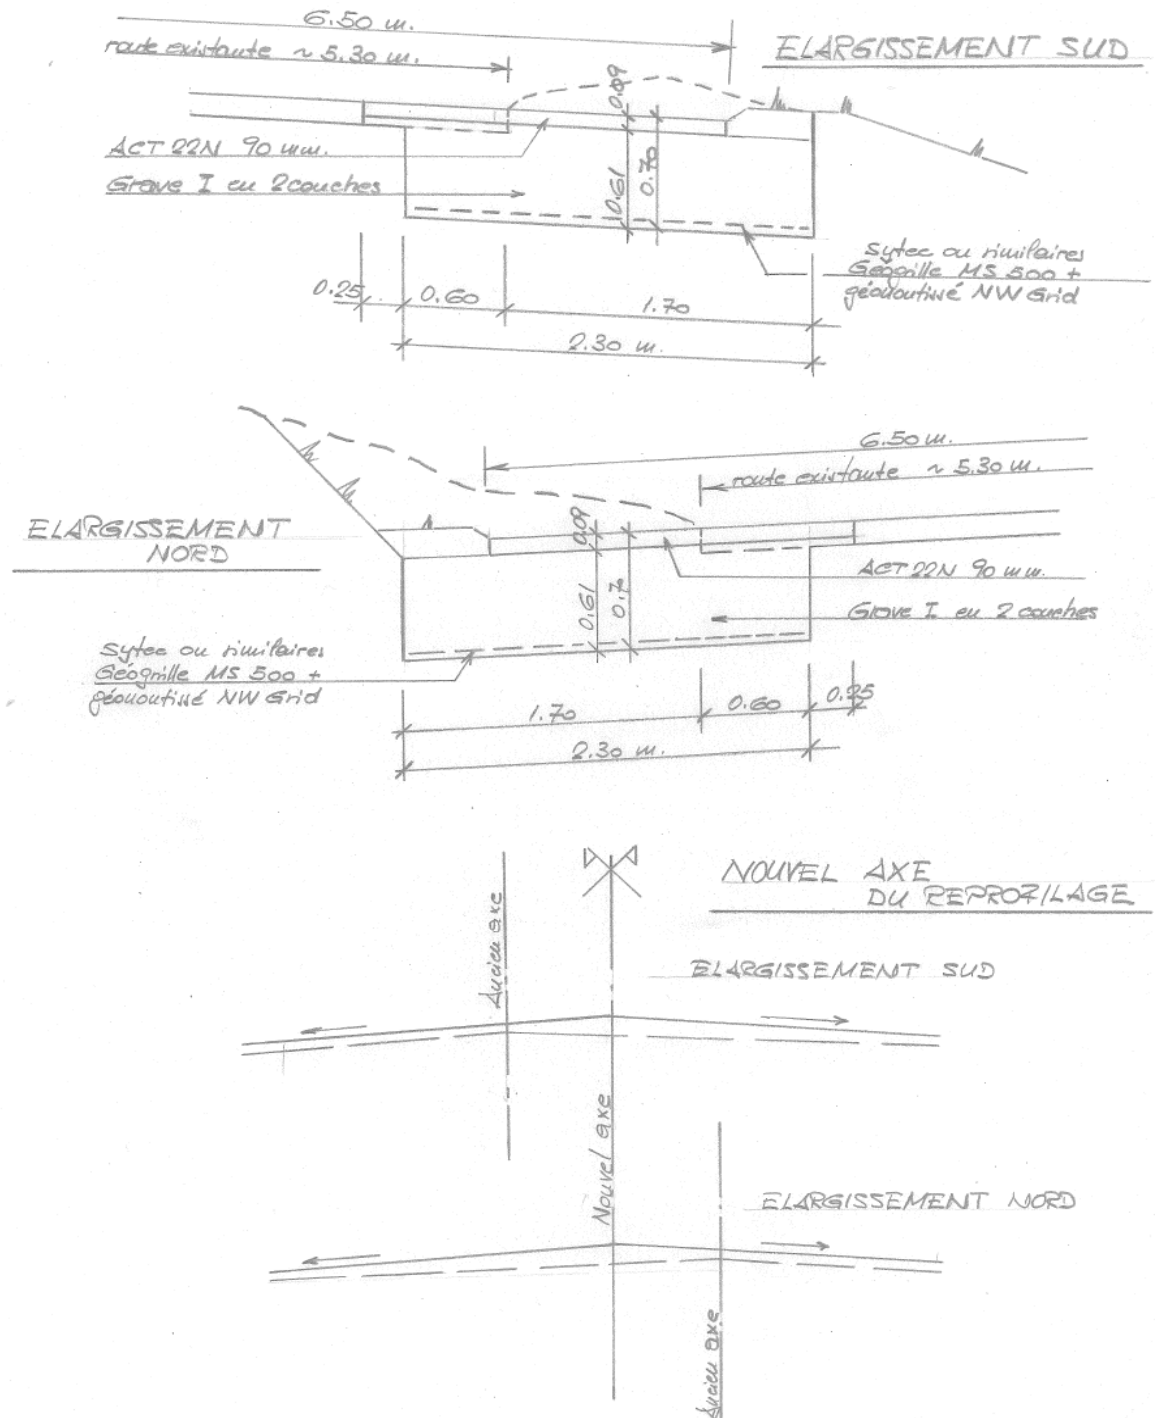 6.50 m.
route existante ~ 5.30 m.
ELARGISSEMENT SUD
0.09
ACT 22N 90 mm.
Grave I en 2 couches
0.61
0.70
Sytec ou similaires
Géogrille MS 500 +
géonontissé NW Grid
0.25
0.60
1.70
2.30 m.
6.50 m.
route existante ~ 5.30 m.
ELARGISSEMENT
NORD
0.09
ACT 22N 90 mm.
0.61
0.7
Grave I en 2 couches
Sytec ou similaires
Géogrille MS 500 +
géonontissé NW Grid
1.70
0.60
0.25
2.30 m.
NOUVEL AXE
DU REPROFILAGE
Ancien axe
ELARGISSEMENT SUD
Nouvel axe
ELARGISSEMENT NORD
Ancien axe